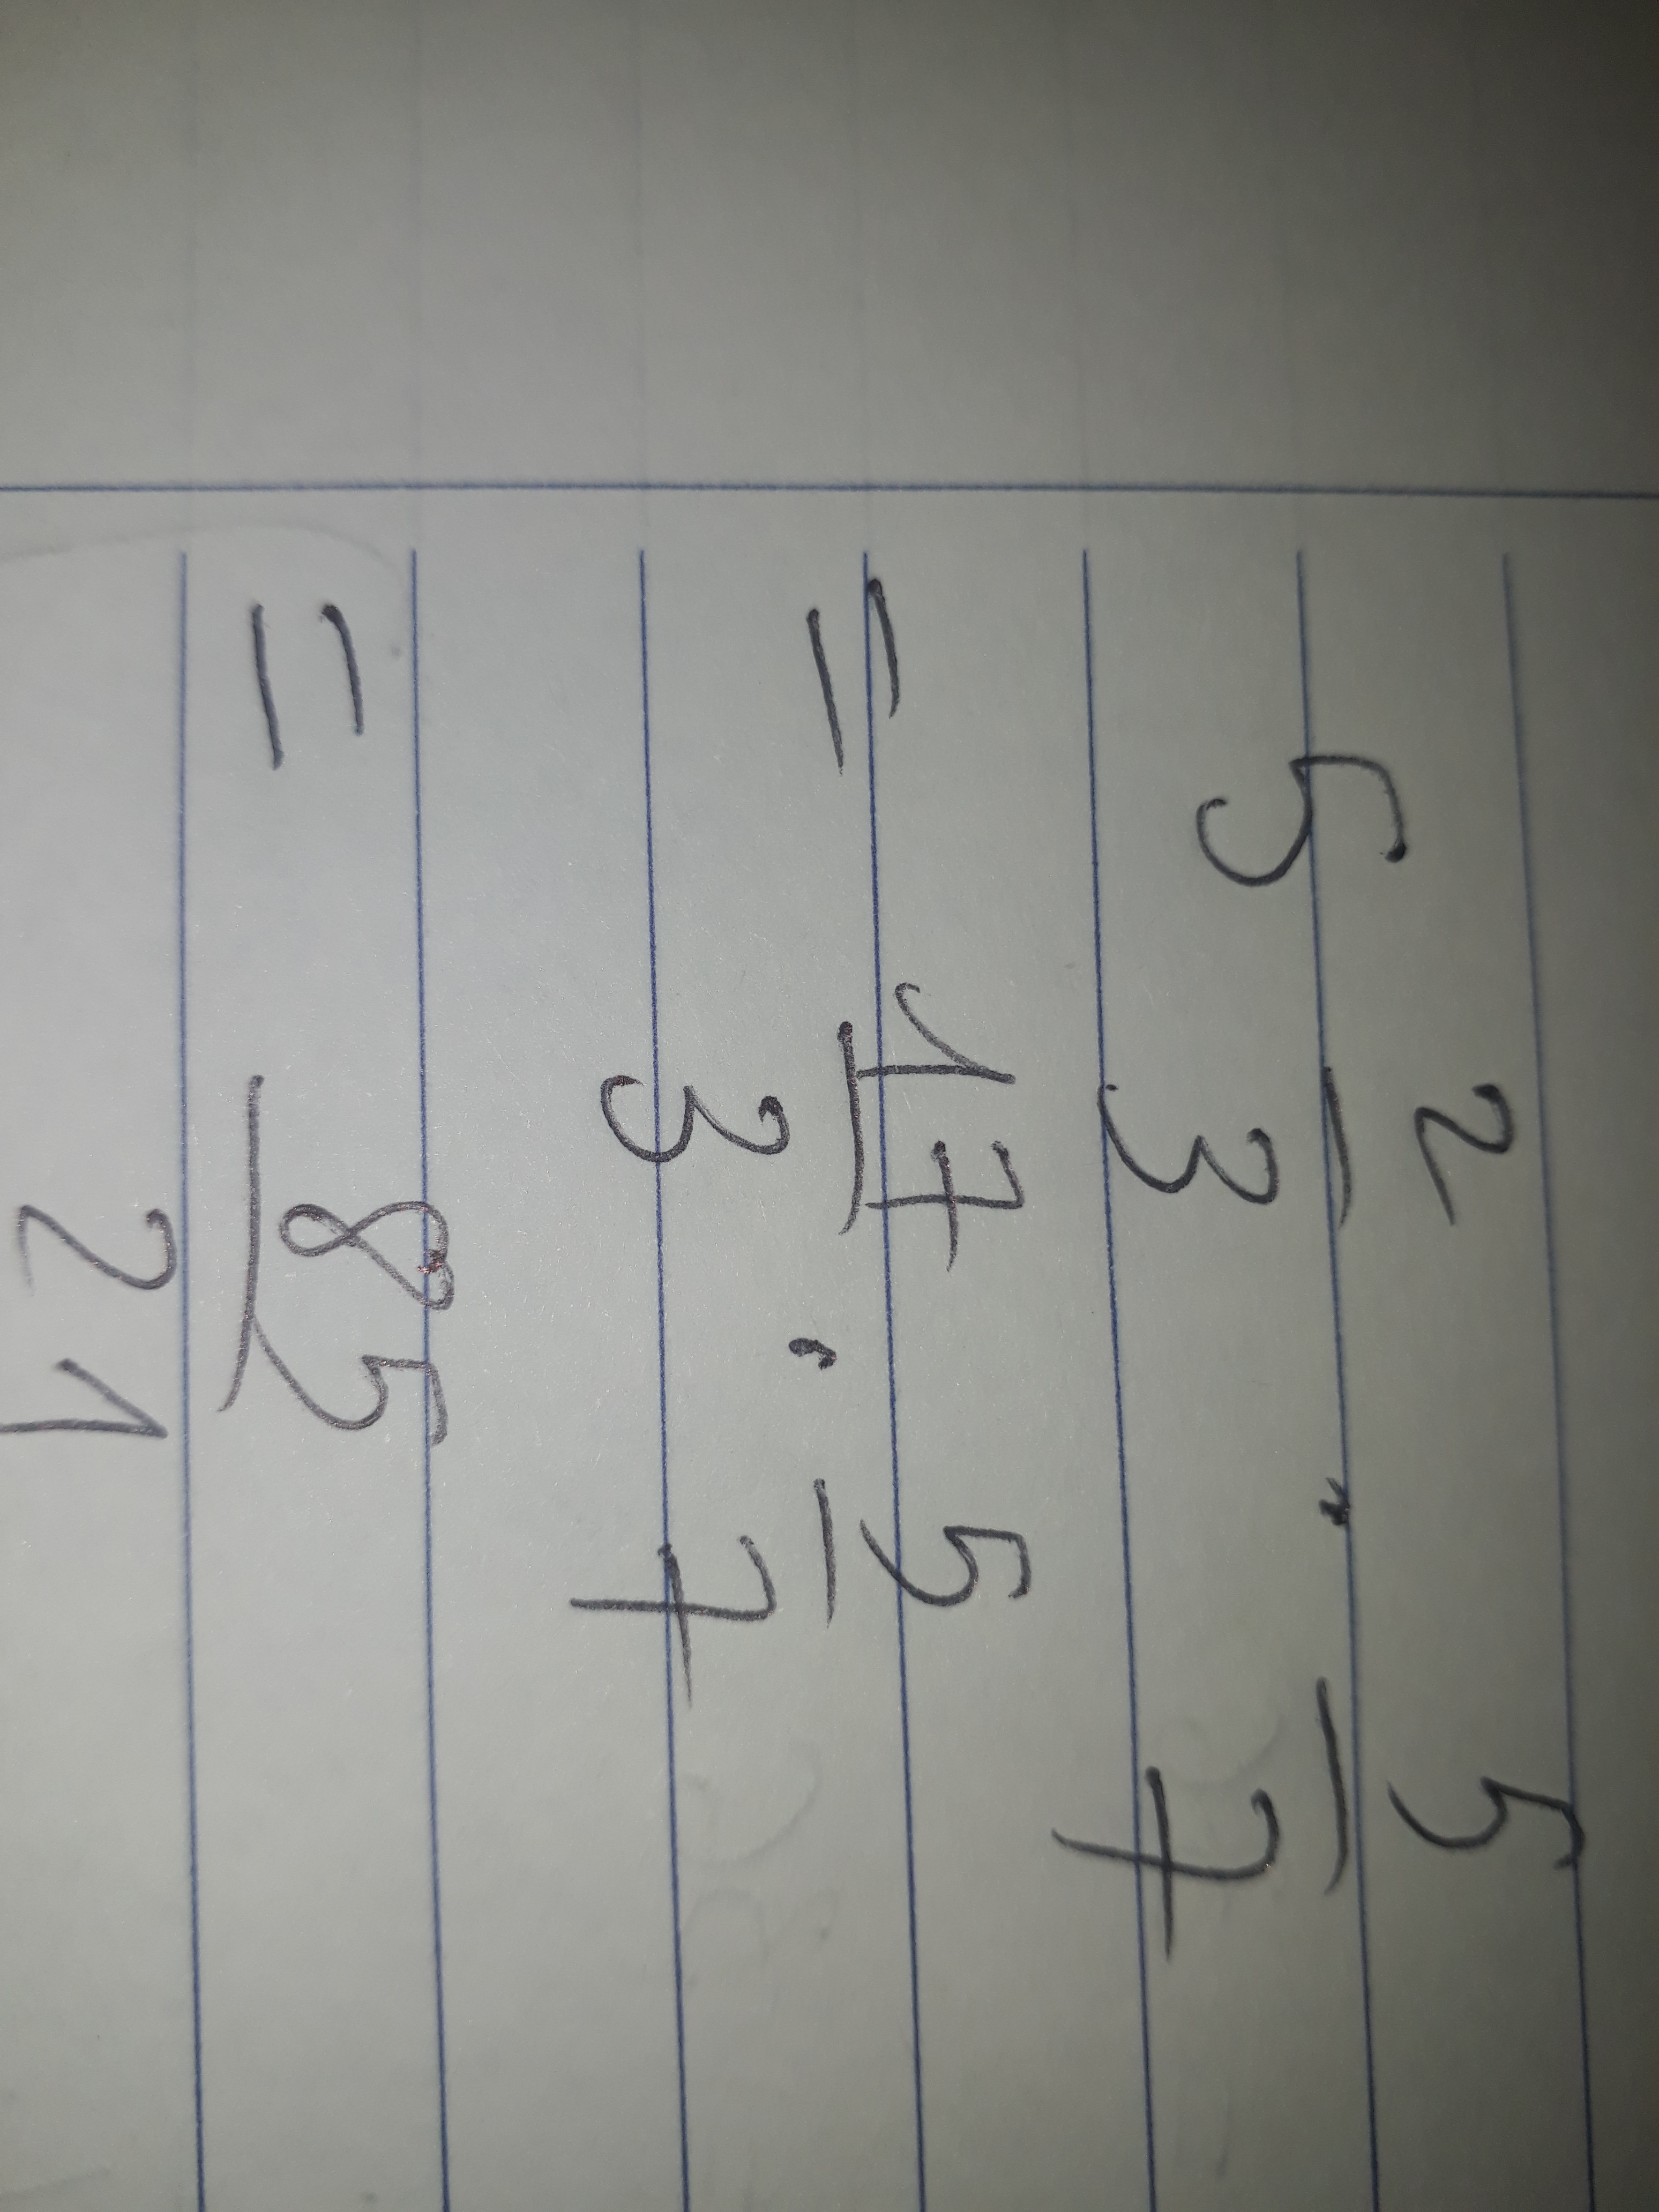 5 2/3 · 5/7
= 17/3 · 5/7
= 85/21